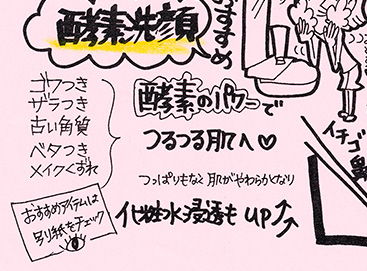 酵素洗顔
おすすめ
ゴワつき
ザラつき
古い角質
ベタつき
メイクくずれ
酵素のパワーで
つるつる肌へ♡
つっぱりもなく 肌がやわらかくなり
化粧水浸透もUP↑↑
おすすめアイテムは
別紙をチェック
イチゴ
鼻